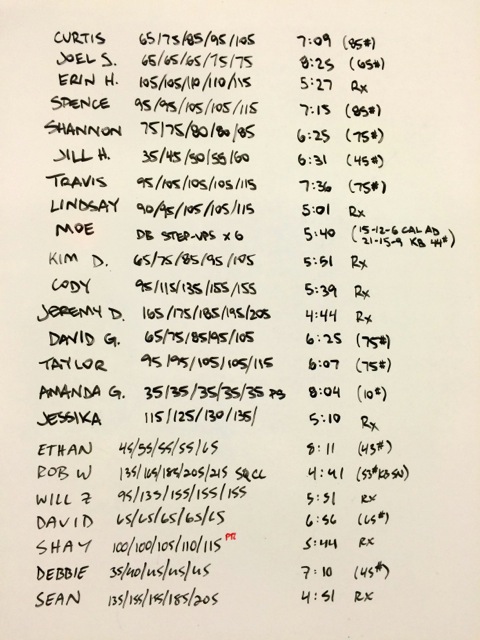 CURTIS 65/75/85/95/105 7:09 (85#)
JOEL S. 65/65/65/75/75 8:25 (65#)
ERIN H. 105/105/110/110/115 5:27 Rx
SPENCE 95/95/105/105/115 7:15 (85#)
SHANNON 75/75/80/80/85 6:25 (75#)
JILL H. 35/45/50/55/60 6:31 (45#)
TRAVIS 95/105/105/105/115 7:36 (75#)
LINDSAY 90/95/105/105/105 5:01 Rx
MOE DB STEP-UPS x 6 5:40 (15-12-6 CAL AD
21-15-9 KB 44#)
KIM D. 65/75/85/95/105 5:51 Rx
CODY 95/115/135/155/155 5:39 Rx
JEREMY D. 165/175/185/195/205 4:44 Rx
DAVID G. 65/75/85/95/105 6:25 (75#)
TAYLOR 95/95/105/105/115 6:07 (75#)
AMANDA G. 35/35/35/35/35 PS 8:04 (10#)
JESSIKA 115/125/130/135/ 5:10 Rx
ETHAN 45/55/55/55/65 8:11 (43#)
ROB W 135/165/185/205/215 SQ CL 4:41 (53#KBSN)
WILL Z 95/135/155/155/155 5:51 RX
DAVID 65/65/65/65/65 6:56 (65#)
SHAY 100/100/105/110/115 PR 5:44 RX
DEBBIE 35/40/45/45/45 7:10 (45#)
SEAN 135/155/155/185/205 4:51 RX